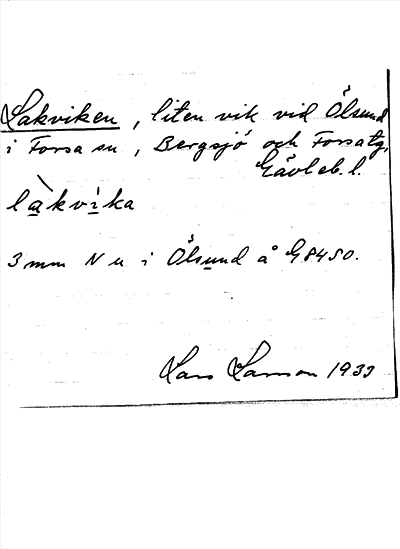 Lakviken, liten vik vid Ölsund
i Forsa sn, Bergsjö och Forsa tg,
Gävleb. l.
làkvika
3 mm N u i Ölsund å G8450.
Lars Larsson 1933